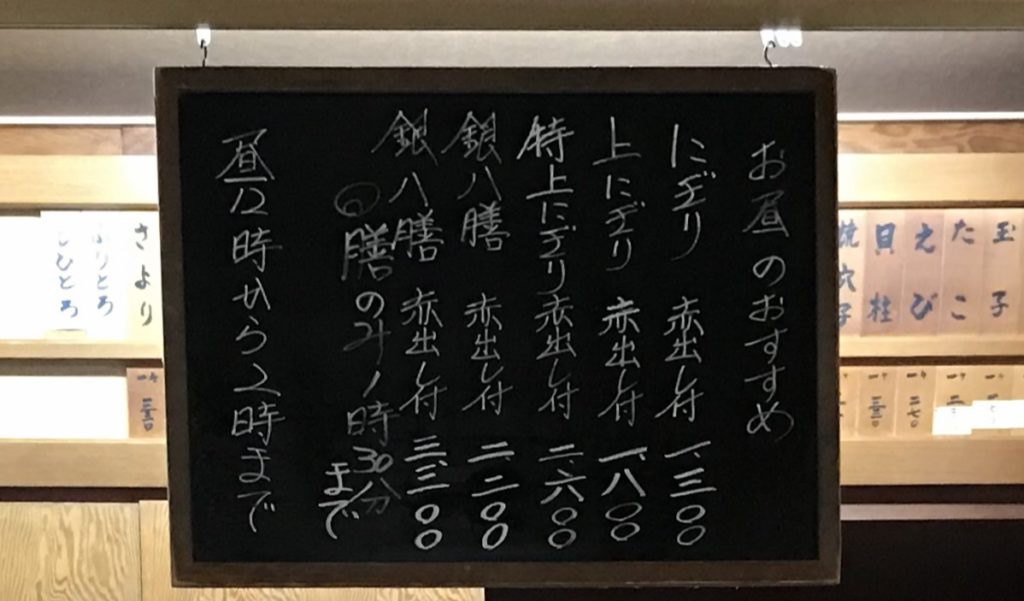 お昼のおすすめ
にぎり 赤出し付 一、三〇〇
上にぎり 赤出し付 一、八〇〇
特上にぎり 赤出し付 二、六〇〇
銀八膳 赤出し付 二、二〇〇
銀八膳 赤出し付 三、三〇〇
膳のみ1時30分まで
昼12時から2時まで
玉子
たこ
えび
貝柱
焼穴子
さより
ぶりとろ